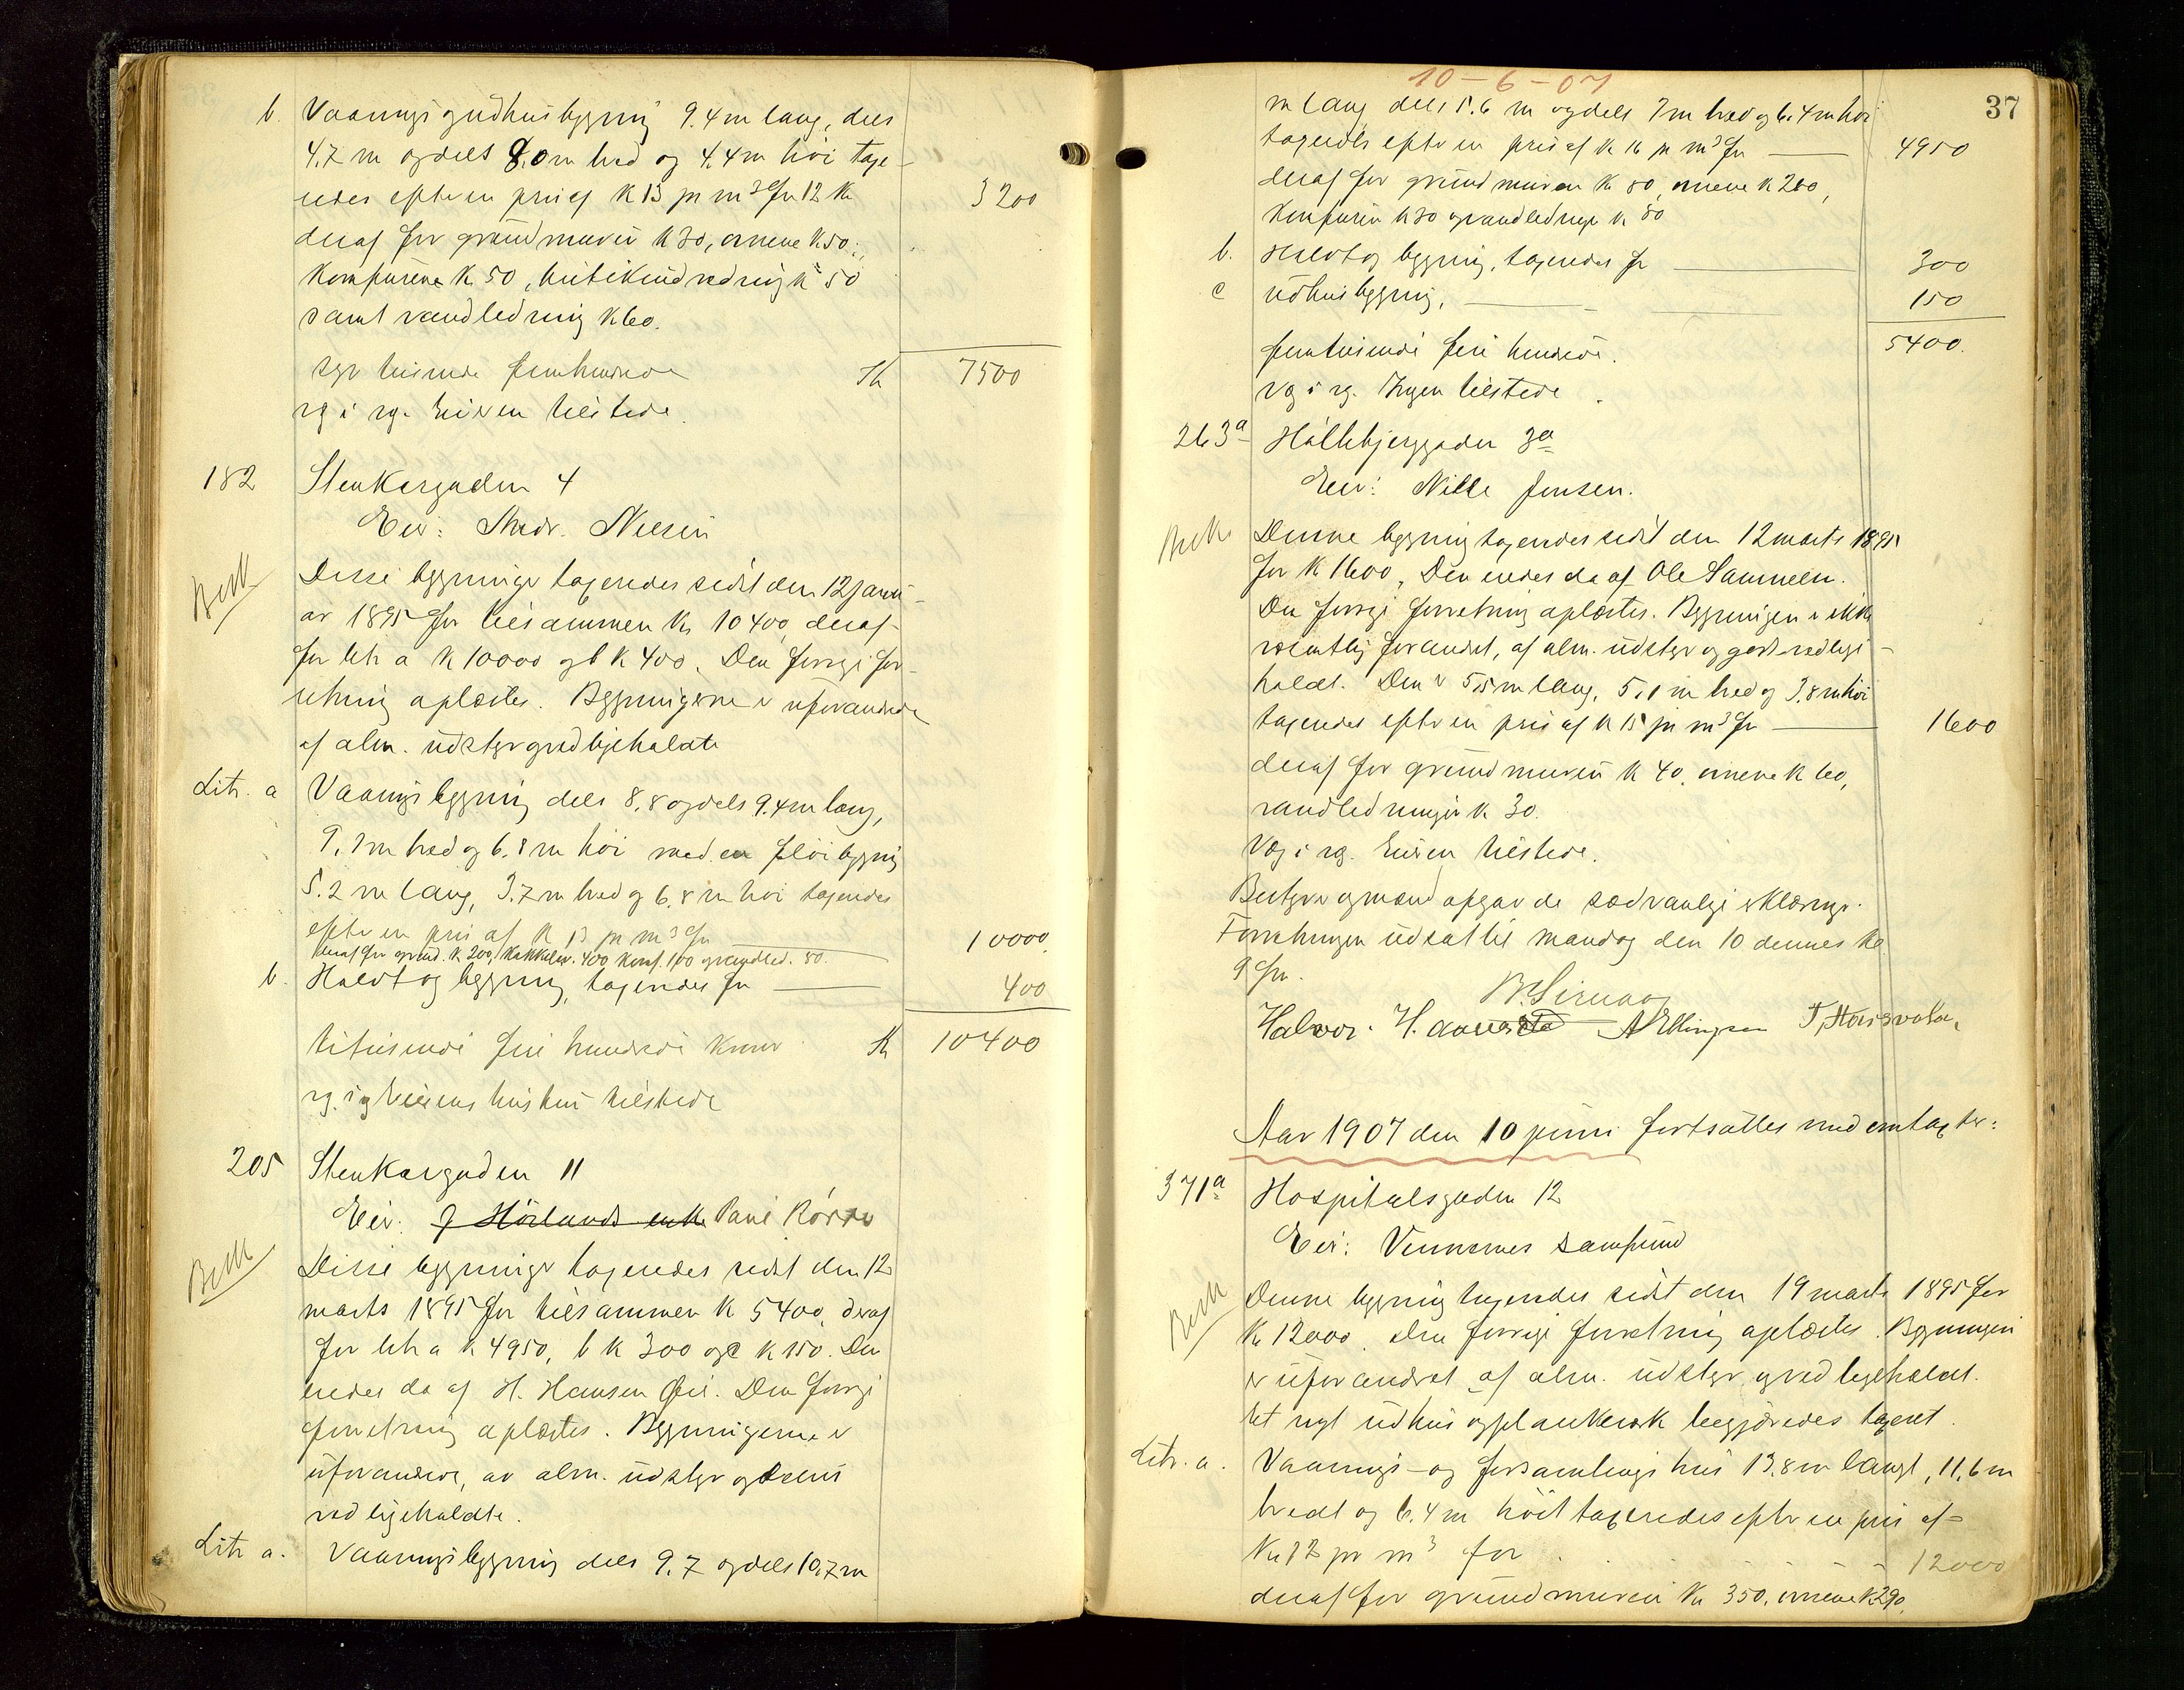 b. Vaanings og udhusbygning 9.4 m lang, dels
4.7 m og dels 8.0 m bred og 4.4 m høi taxe-
redes efter en pris af K 13 pr m³ for 12 K 3200
deraf for grundmuren K 30, ovnene K 50.,
Komfurene K 50, butikindredning K 50
samt vandledning K 60.
syv tusinde femhundrede Kr 7500
rg i rg. Eieren tilstede.
182 Stenkargaden 4
Eier: Andr. Nilsen
Besk
Disse bygninger taxeredes sidst den 12 janu-
ar 1895 for tilsammen Kr 10400, deraf
for litr a K 10000 og b K 400. Den forrige for-
retning oplæstes. Bygningerne er uforandrede
af alm. udstyr og vedligeholdte
Litr. a Vaaningsbygning dels 8.8 og dels 9.4 m lang,
9.1 m bred og 6.8 m høi med en fløibygning
5.2 m lang, 3.7 m bred og 6.8 m høi taxeredes
efter en pris af K 13 pr m³ for 10000
deraf for grund. K 200, Kakkelov. 400 Komf. 100 og vandled. 80.
b. Halvtag bygning, taxeredes for 400
titusinde fire hundrede kroner Kr 10400
rg. i rg. Eierens hustru tilstede
205 Stenkargaden 11
Eier: J Hörlands enke Pane Rörre
Besk
Disse bygninger taxeredes sidst den 12
marts 1895 for tilsammen K 5400, deraf
for litr a K 4950, b K 300 og c K 150. De
eiedes da af H. Hansen Eie. Den forrige
forretning oplæstes. Bygningerne er
uforandrede, av alm. udstyr og
vedligeholdte.
Litr a. Vaaningsbygning dels 9.7 og dels 10.7 m
10-6-07
37
m lang dels 5.6 m og dels 7 m bred og 6.4 m høi
taxeredes efter en pris af K 16 pr m³ for 4950
deraf for grundmuren K 80, ovnene K 200,
Komfuren K 30 og vandledninge K 80
b. Halvtag bygning, taxeredes for 300
c Udhusbygning, 150
femtusinde fire hundrede. 5400.
rg i rg. Ingen tilstede.
263a Hållebjerggaden 3a
Eier: Nille Jensen.
Besk
Denne bygning taxeredes sidst den 12 marts 1895
for K 1600, Den eiedes da af Ole Samuelsen.
Den forrige forretning oplæstes. Bygningen er ikke
væsentlig forandret, af alm. udstyr og godt vedlige-
holdt. Den er 5,5 m lang, 5,1 m bred og 3.8 m høi
taxeredes efter en pris af K 15 pr m³ for 1600
deraf for grundmuren K 40, ovnene K 60,
vandledningen K 30.
Vg i rg. Eieren tilstede.
Bestyrer og mænd afgav de sædvanlige erklæringer.
Forretningen udsat til mandag den 10 dennes kl.
9 fm.
Halvor. H. A Ellingsen
Aar 1907 den 10 juni fortsattes med omtaxter:
371a Hospitalsgaden 12
Eier: Vennernes samfund
Besk
Denne bygning taxeredes sidst den 19 marts 1895 for
K 12000. Den forrige forretning oplæstes. Bygningen
er uforandret af alm. udstyr og vedligeholdt.
Et nyt udhus og plankeverk begjæredes taxeret.
Litr. a. Vaanings- og forsamlingshus 13.8 m langt, 11,6 m
bredt og 6.4 m høit taxeredes efter en pris af
Kr 12 pr m³ for 12000
deraf for grundmuren Kr 350, ovnene K 290,